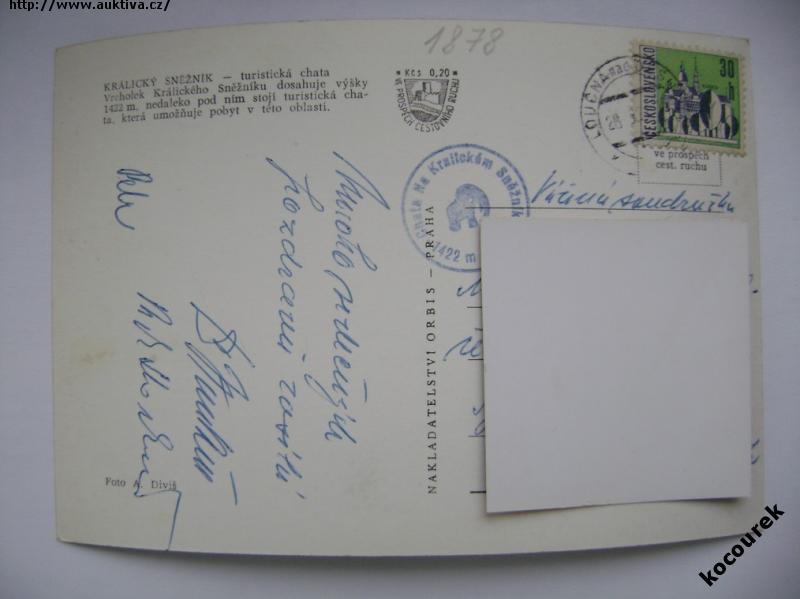 http://www.auktiva.cz/
1878
KRÁLICKÝ SNĚŽNÍK — turistická chata
Vrcholek Králického Sněžníku dosahuje výšky
1422 m, nedaleko pod ním stojí turistická cha-
ta, která umožňuje pobyt v této oblasti.
Kčs 0,20
VE PROSPĚCH CESTOVNÍHO RUCHU
30 h
ČESKOSLOVENSKO
LOUČNÁ nad
28
ve prospěch
cest. ruchu
Chata Na Kralickém Sněžník
1422 m
Vážená soudružka
Mnoho srdečných
pozdravů zasílá
Petr
NAKLADATELSTVÍ ORBIS — PRAHA
Foto A. Diviš
kocourek